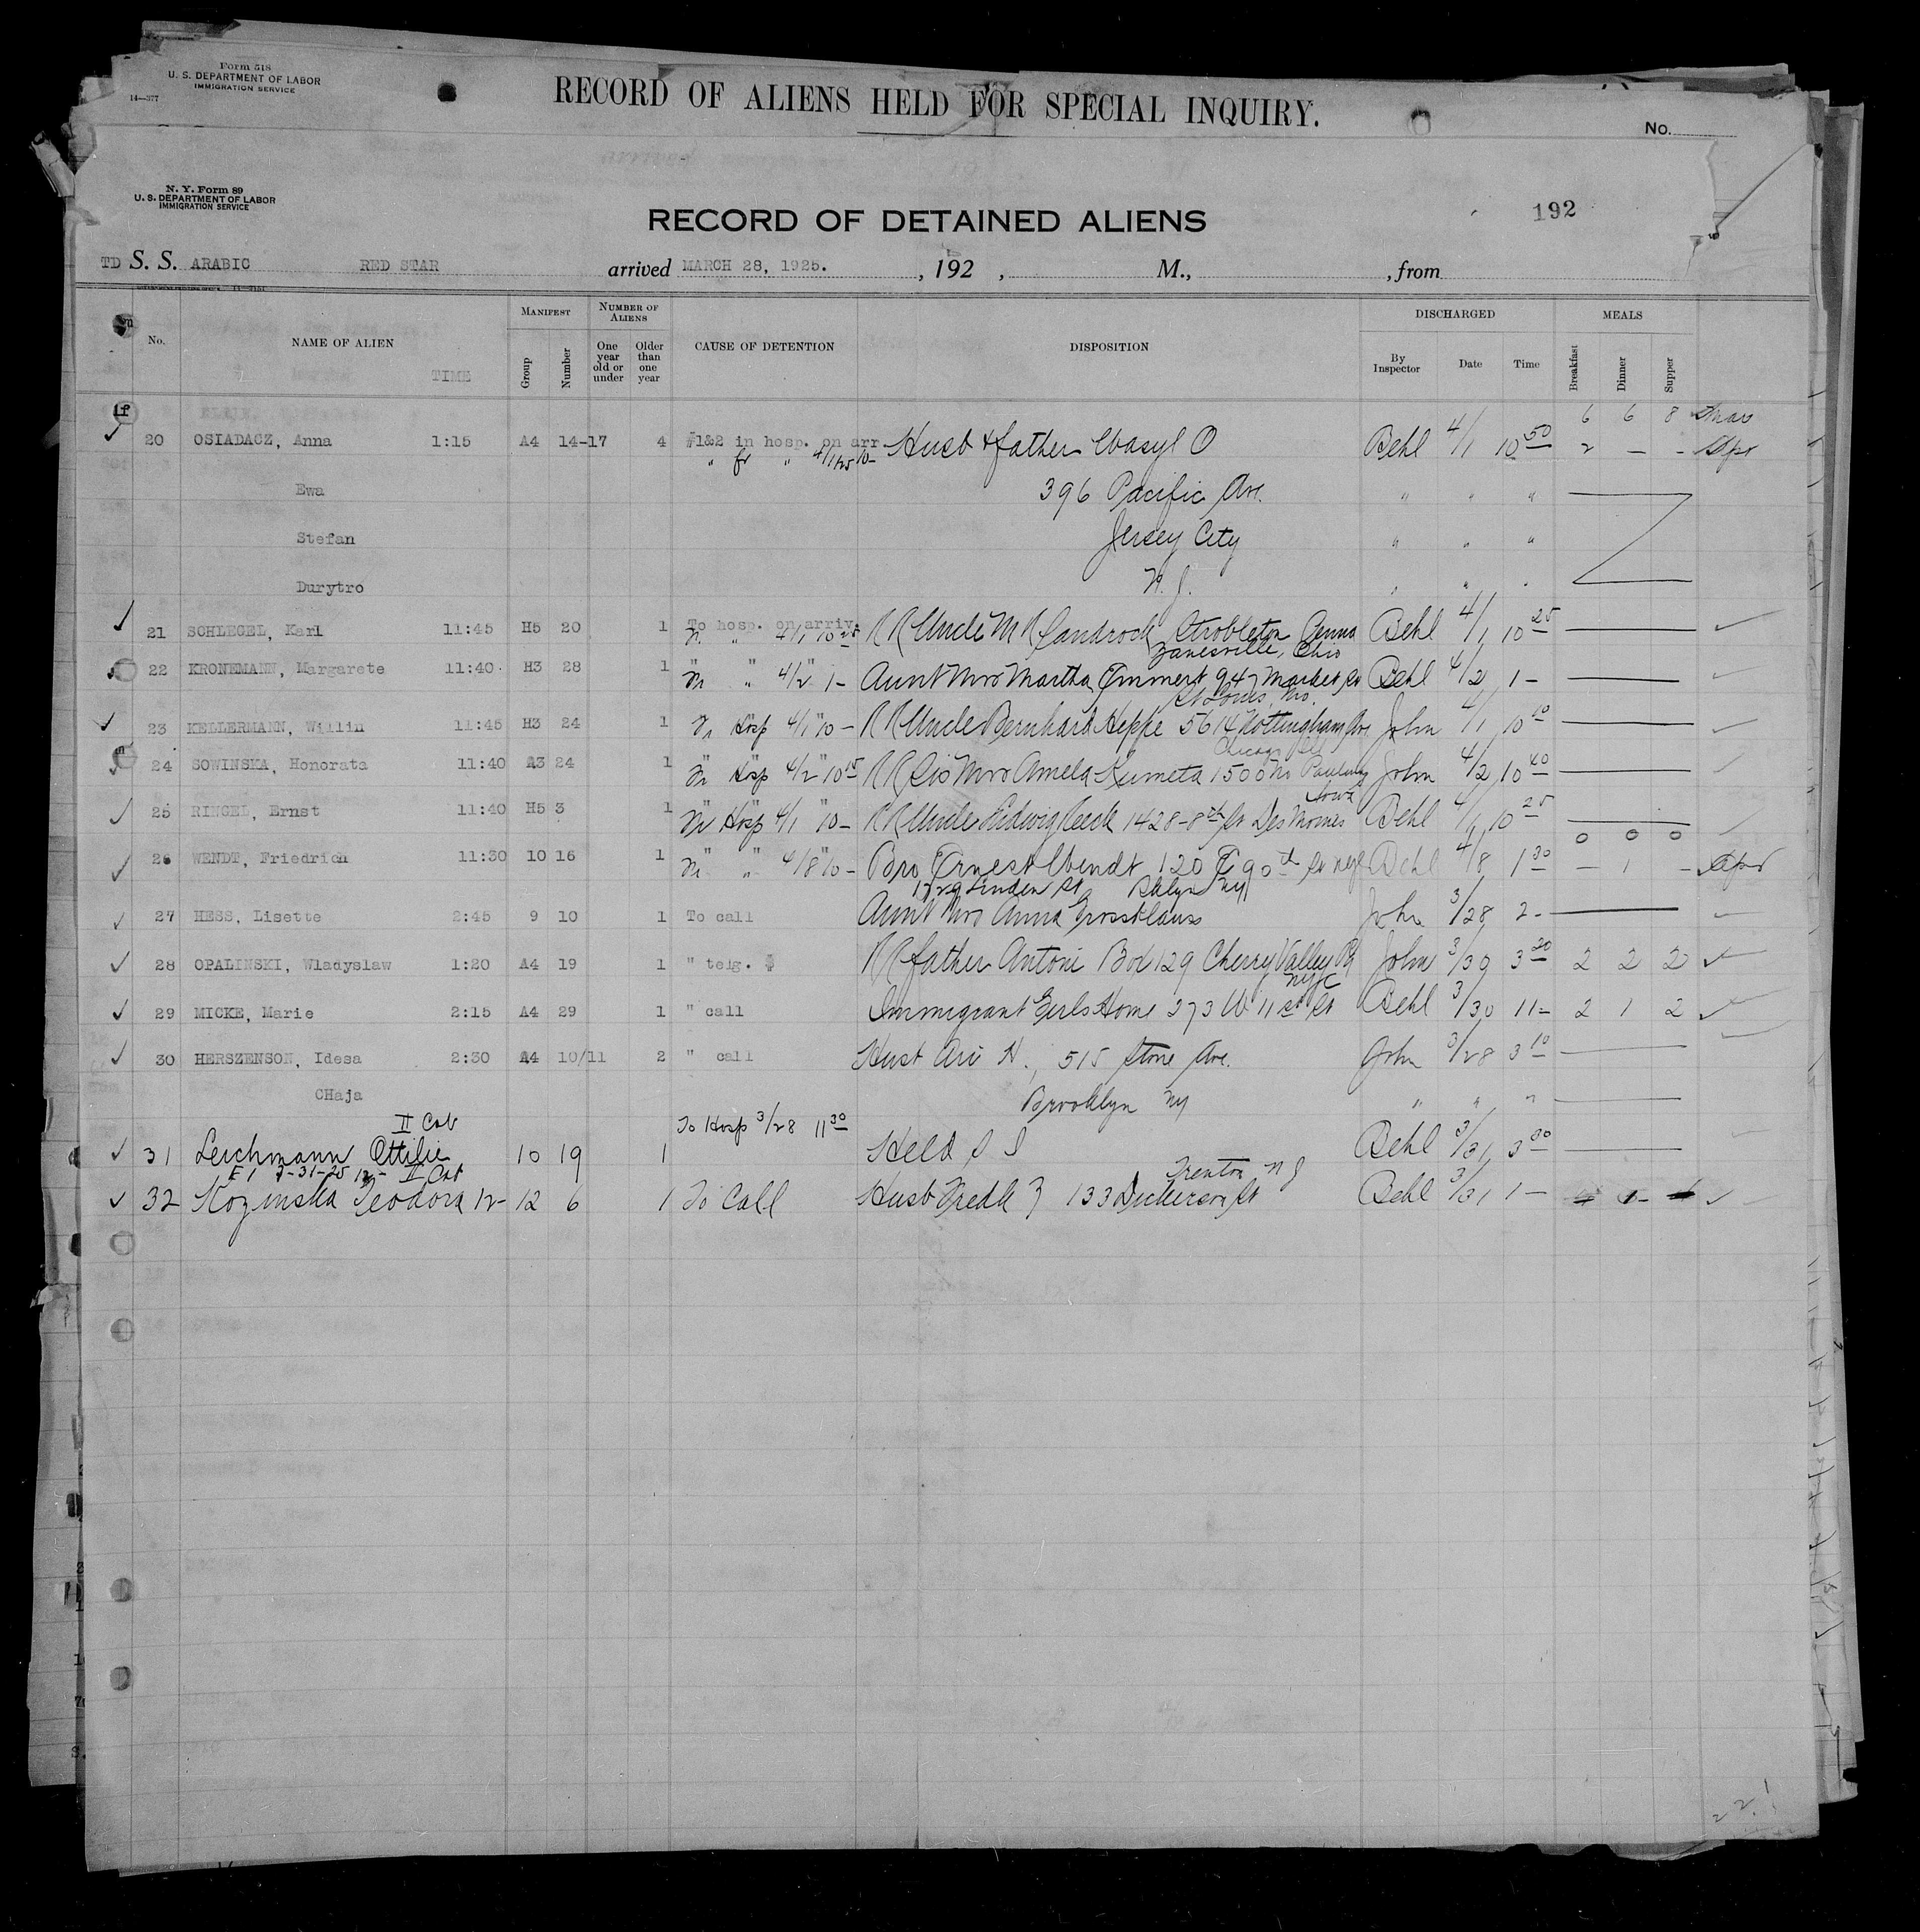 Form 518
U. S. DEPARTMENT OF LABOR
IMMIGRATION SERVICE
14—377
RECORD OF ALIENS HELD FOR SPECIAL INQUIRY.
No.
N. Y. Form 89
U. S. DEPARTMENT OF LABOR
IMMIGRATION SERVICE
RECORD OF DETAINED ALIENS
192
TD S. S. ARABIC RED STAR arrived MARCH 28, 1925. , 192 , M., , from
No. NAME OF ALIEN TIME MANIFEST Group Number NUMBER OF ALIENS One year old or under Older than one year CAUSE OF DETENTION DISPOSITION DISCHARGED By Inspector Date Time MEALS Breakfast Dinner Supper
6 6 8 Mar
20 OSIADACZ, Anna 1:15 A4 14-17 4 #1&2 in hosp. on arr. Husb & father Wasyl O Behl 4/1 10 50 2 — - Apr
" fr " 4/1/25 10-
Ewa 396 Pacific Ave. " " "
Stefan Jersey City " " "
Durytro N. J. " " "
21 SCHLEGEL, Karl 11:45 H5 20 1 To hosp. on arriv. RR Uncle M R Candrock Strobleton Penna Behl 4/1 10 25
" 4/1 10 25
Zanesville, Ohio
22 KRONEMANN, Margarete 11:40 H3 28 1 " " " 4/2 1- Aunt Mrs Martha Emmert 947 Market St Behl 4/2 1-
St Louis, Mo.
23 KELLERMANN, Willin 11:45 H3 24 1 Hosp 4/1 10- RR Uncle Bernhard Heppe 5614 Nottingham Ave John 4/1 10 10
Chicago Ill
24 SOWINSKA, Honorata 11:40 A3 24 1 Hosp 4/2 10 15 RR Sis Mrs Amela Kumeta 1500 No Paulina John 4/2 10 40
Iowa
25 RINGEL, Ernst 11:40 H5 3 1 Hosp 4/1 10- RR Uncle Ludwig Reeck 1428-8th St Des Moines Behl 4/1 10 25
0 0 0
26 WENDT, Friedrich 11:30 10 16 1 " " 4/8 10- Bro Ernest Wendt 120 E 90th St NYC Behl 4/8 1 30 — 1 - Apr
1729 Linden St Bklyn NY
27 HESS, Lisette 2:45 9 10 1 To call Aunt Mrs Anna Grossklaus John 3/28 2-
28 OPALINSKI, Wladyslaw 1:20 A4 19 1 " telg. $ RR father Antoni Box 129 Cherry Valley Pa John 3/30 3 20 2 2 2
NYC
29 MICKE, Marie 2:15 A4 29 1 " call Immigrant Girls Home 273 W 11 st St Behl 3/30 11- 2 1 2
30 HERSZENSON, Idesa 2:30 A4 10/11 2 " call Husb Ari H., 515 Stone Ave. John 3/28 3 10
CHaja Brooklyn NY " " "
II Cab To Hosp 3/28 11 30
31 Leichmann Ottilie 10 19 1 Held S I Behl 3/31 3 30
3-31-25 II Cab Trenton N J
32 Kozinska Teodora 12- 12 6 1 To Call Husb Fredk 133 Dickerson St Behl 3/31 1- 1-